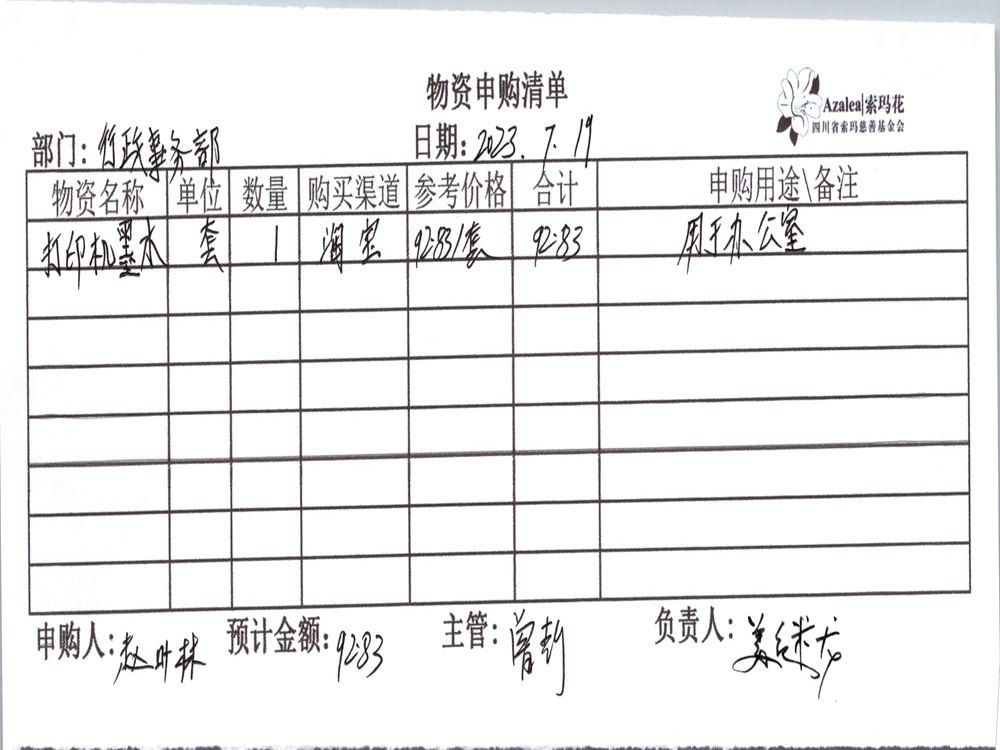 物资申购清单
Azalea|索玛花
四川省索玛慈善基金会
部门：行政事务部 日期：2023.7.19
物资名称 单位 数量 购买渠道 参考价格 合计 申购用途\备注
打印机墨水 套 1 淘宝 92.83/套 92.83 用于办公室
申购人：赵叶林 预计金额：92.83 主管：曾 负责人：